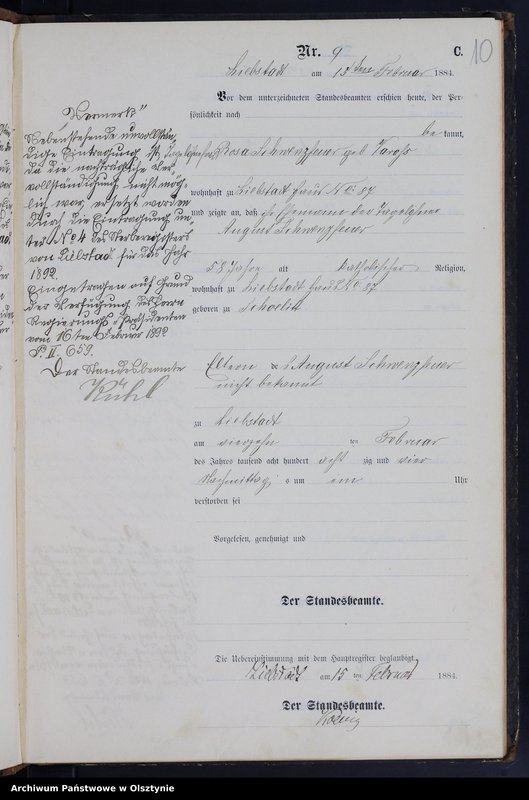 Nr. 9
C.
10
Liebstadt am 15ten Februar 1884.
Vor dem unterzeichneten Standesbeamten erschien heute, der Per-
sönlichkeit nach
be kannt,
Rosa Schwenzfeuer geb.
wohnhaft zu Liebstadt Haus No 57
und zeigte an, daß ihr Ehemann der Tagelöhner
August Schwenzfeuer
58 Jahre alt katholischer Religion,
wohnhaft zu Liebstadt Haus No 57
geboren zu
Eltern August Schwenzfeuer
nicht bekannt
zu Liebstadt
am vierzehn ten Februar
des Jahres tausend acht hundert acht zig und vier
Nachmittags um ein Uhr
verstorben sei
Vorgelesen, genehmigt und
Der Standesbeamte.
Die Uebereinstimmung mit dem Hauptregister beglaubigt
Liebstadt am 15 ten Februar 1884.
Der Standesbeamte.
"Vermerk"
Nebenstehende unvollstän-
dige Eintragung ist,
da die nachträgliche Ver-
vollständigung nicht mög-
lich war, ersetzt worden
durch die Eintragung un-
ter No 4 des Sterberegisters
von Liebstadt für das Jahr
1892.
Eingetragen auf Grund
der Verfügung des Herrn
Regierungs-Präsidenten
vom 16ten Februar 1892
P. II. 659.
Der Standesbeamte
Kühl
Archiwum Państwowe w Olsztynie